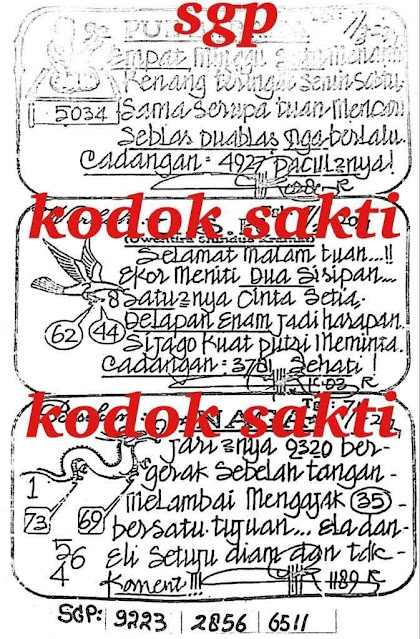 sgp
Empat Minggu
5034
Kenang teringat Senin Sabtu.
Sama Serupa tuan Mencari
Seblas Duablas juga berlalu.
Cadangan: 4927
kodok sakti
Selamat Malam tuan....!!
Ekor Meniti Dua Sisipan...
8 Satu2nya Cinta Setia.
62 44 Delapan Enam jadi harapan.
Sijago Kuat putri Meminta.
Cadangan: 3781 Sehati!
kodok sakti
NAGA
Jari2nya 9320 ber-
gerak Sebelah tangan-
1
Melambai Mengajak 35-
73 69
bersatu tujuan... Ela dan-
56
Eli Setuju diam dan tdk-
4
Koment!!! 1189
SGP: 9223 | 2856 | 6511